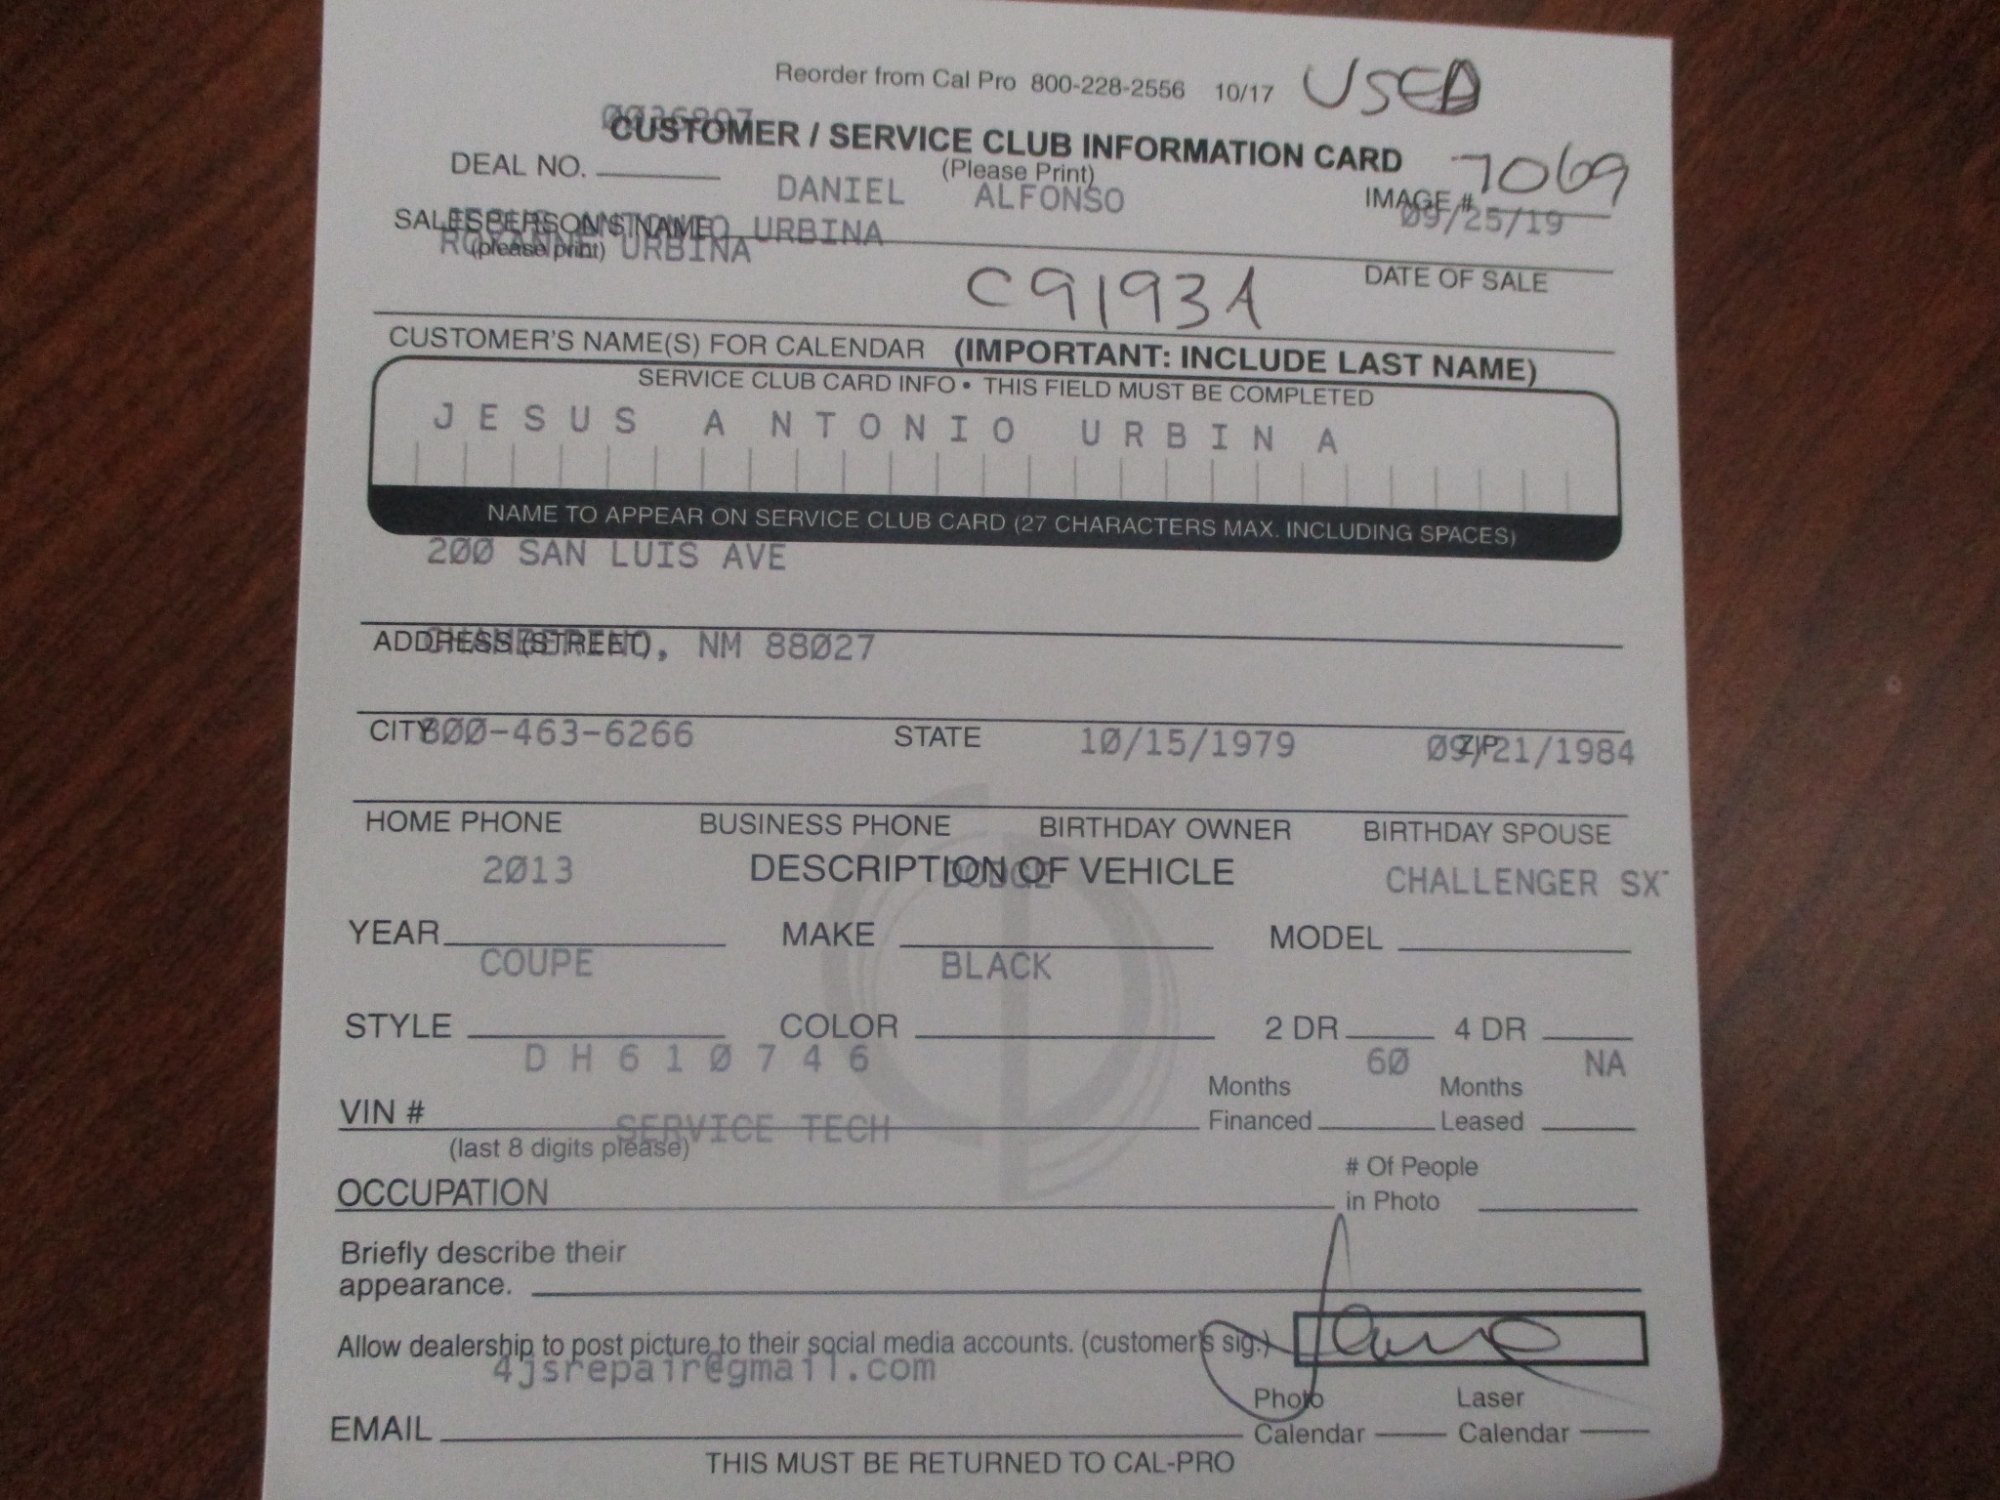 Reorder from Cal Pro 800-228-2556 10/17 USED
CUSTOMER / SERVICE CLUB INFORMATION CARD
DEAL NO. (Please Print) 7069
DANIEL ALFONSO IMAGE #
SALESPERSON'S NAME URBINA 09/25/19
(please print) URBINA
C9193A DATE OF SALE
CUSTOMER'S NAME(S) FOR CALENDAR (IMPORTANT: INCLUDE LAST NAME)
SERVICE CLUB CARD INFO • THIS FIELD MUST BE COMPLETED
JESUS ANTONIO URBINA
NAME TO APPEAR ON SERVICE CLUB CARD (27 CHARACTERS MAX. INCLUDING SPACES)
200 SAN LUIS AVE
ADDRESS (STREET) NM 88027
CITY 800-463-6266 STATE 10/15/1979 ZIP 09/21/1984
HOME PHONE BUSINESS PHONE BIRTHDAY OWNER BIRTHDAY SPOUSE
2013 DESCRIPTION OF VEHICLE DODGE CHALLENGER SX
YEAR MAKE MODEL
COUPE BLACK
STYLE COLOR 2 DR 4 DR
DH610746 60 NA
VIN # Months Financed Months Leased
SERVICE TECH
(last 8 digits please)
OCCUPATION # Of People in Photo
Briefly describe their
appearance.
Allow dealership to post picture to their social media accounts. (customer's sig.)
4jsrepair@gmail.com
EMAIL Photo Calendar Laser Calendar
THIS MUST BE RETURNED TO CAL-PRO